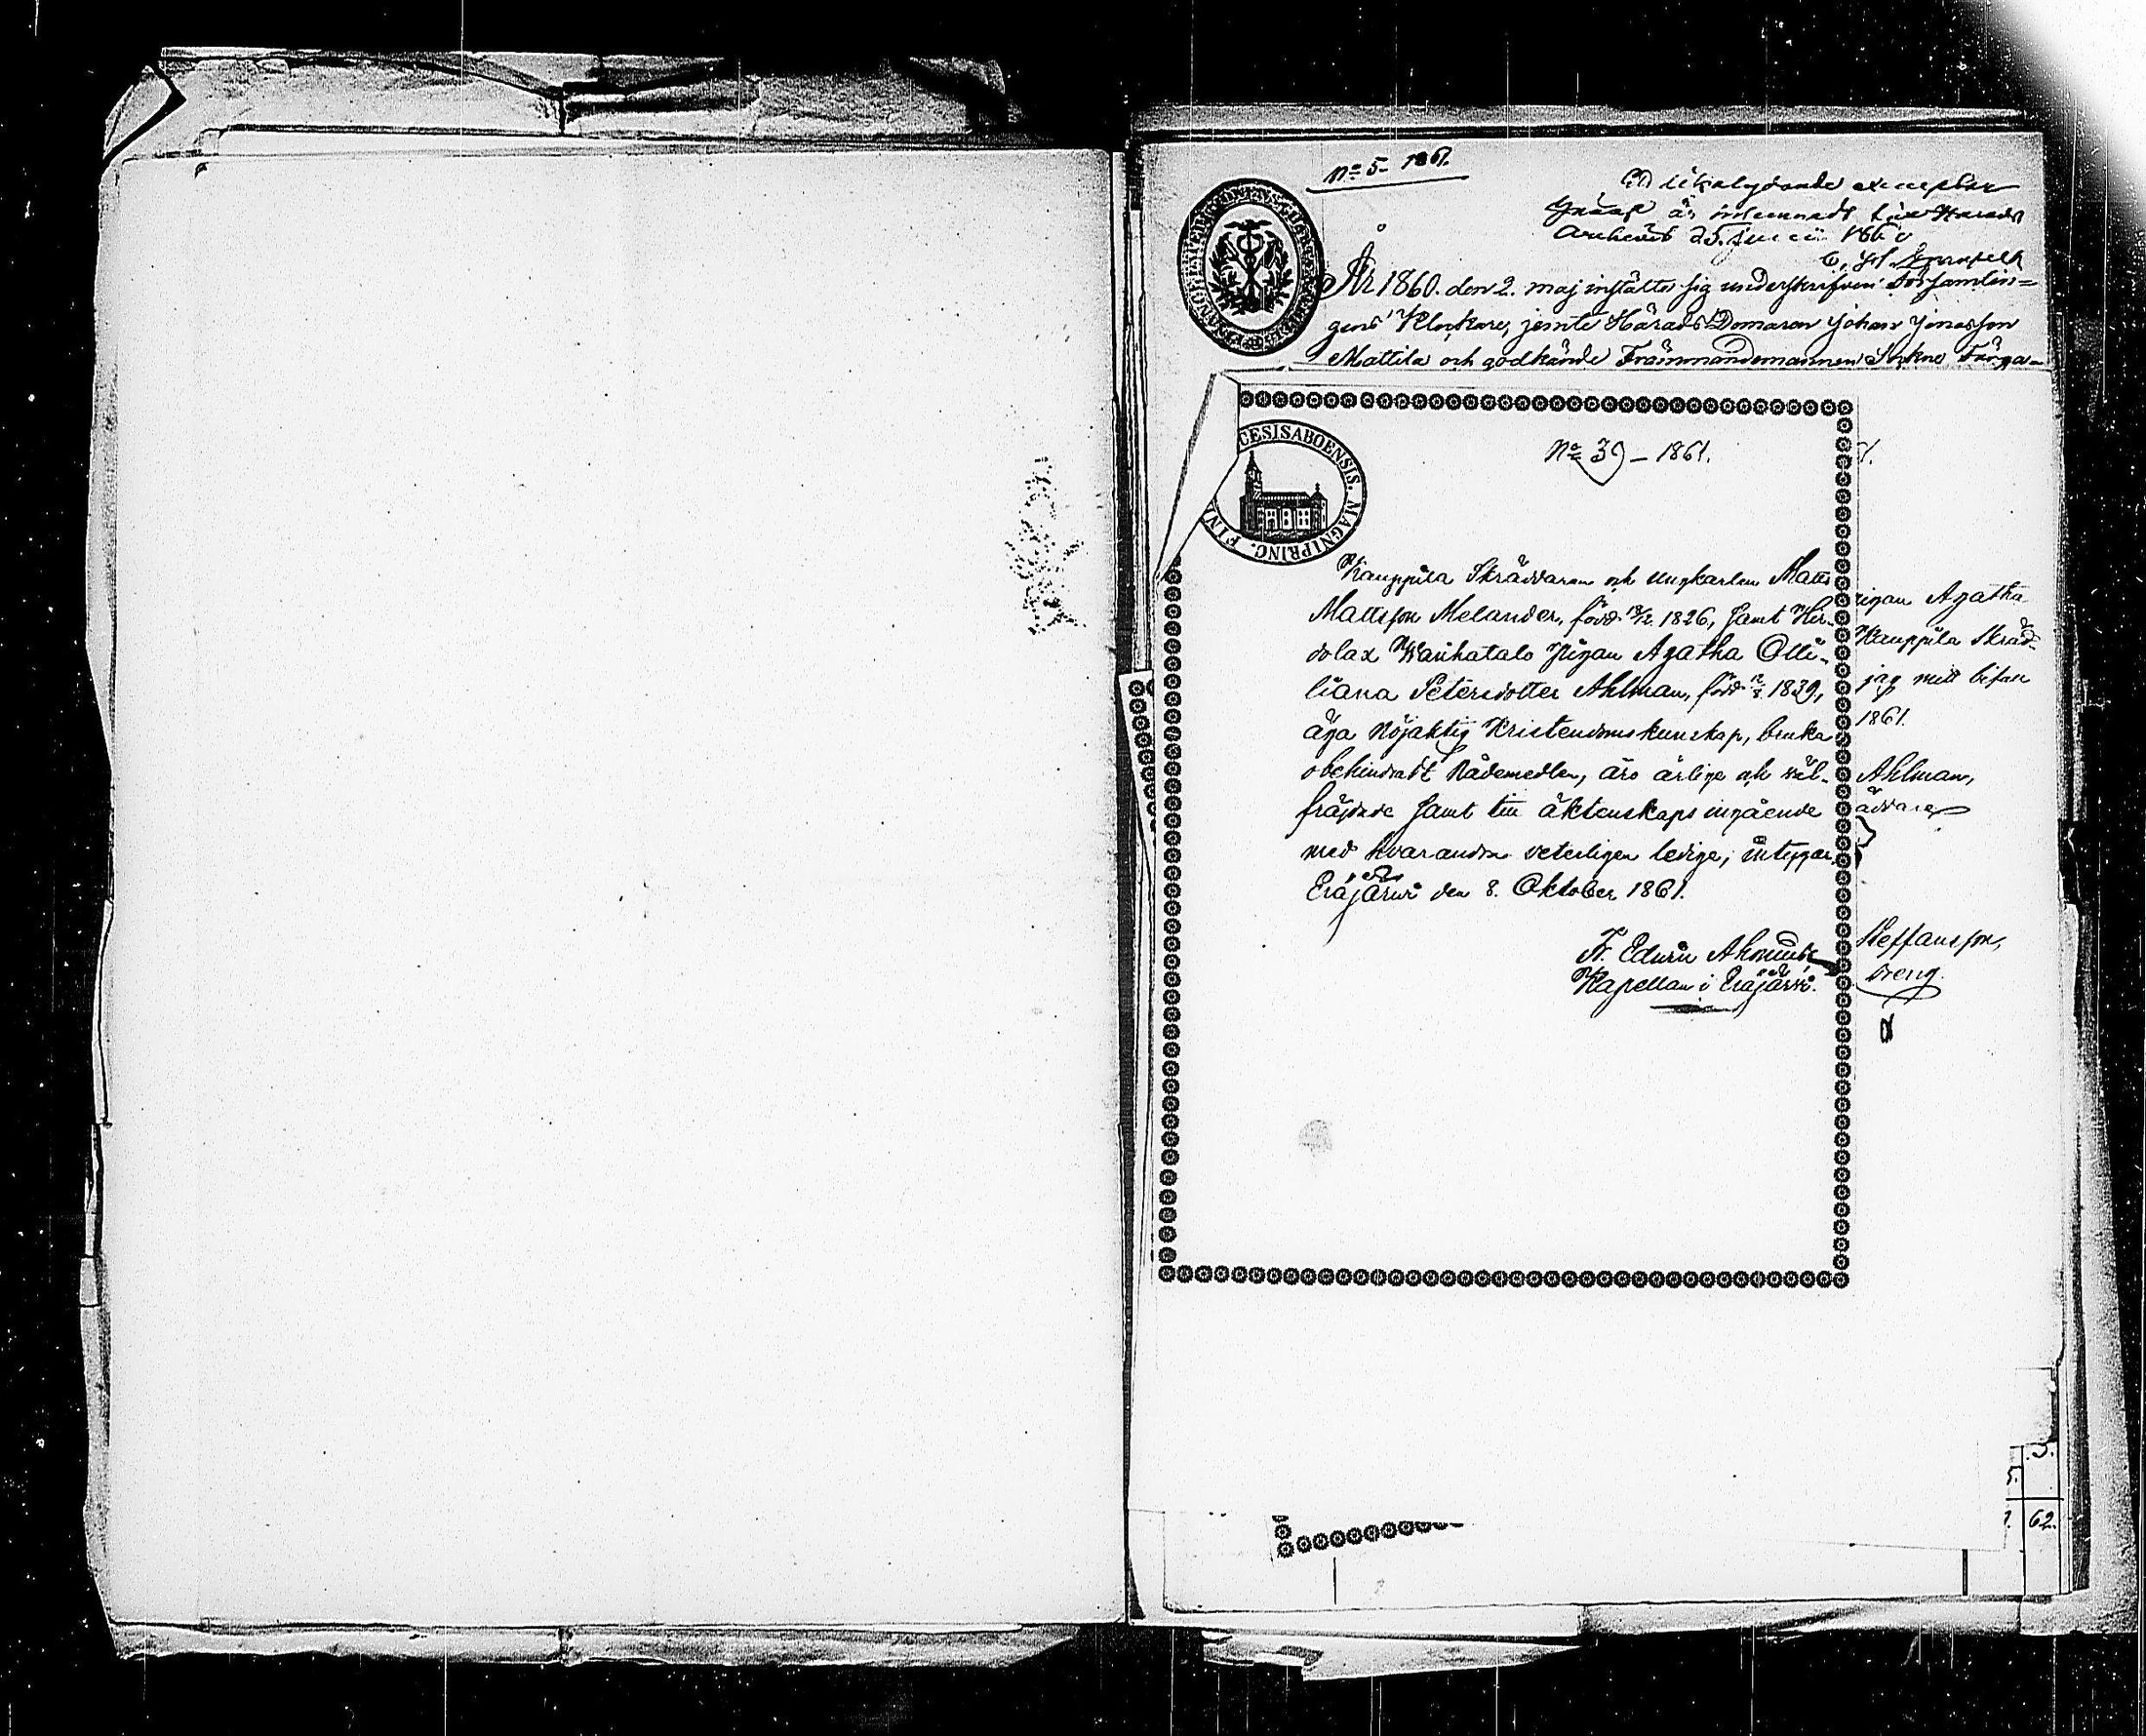 No 5 1861.
Ett likalydande exemplar
är inlemnadt till Härads
Archivet 25 Junii 1860
År 1860. den 2. maj instälte sig underskrifven Församlin=
gens Klockare, jemte HäradsDomaren Johan Jonasson
Mattila och godkände Främmandemannen Sockne Färga-
CESIS ABOENSIS. MAGNI PRINC. FINL
No 39 – 1861.
Kauppila Skräddaren och Ungkarlen Matts
Mattsson Melander, född 18/12 1826, samt Hir-
dolax Wanhatalo Pigan Agatha Otti-
liana Petersdotter Ahlman, född 1839,
äga nöjaktig Kristendomskunskap, bruka
obehindradt Nådemedlen, äro ärlige och väl-
fräjdade samt till äktenskaps ingående
med hvarandra veterligen ledige; intygar,
Eräjärvi den 8. Oktober 1861.
Fr. Edvin
Kapellan i Eräjärvi.
1.
igan Agatha
Kauppila Skräd-
jag mitt bifall
1861.
Ahlman,
äddare
Steffansson,
dreng.
3.
5.
62.